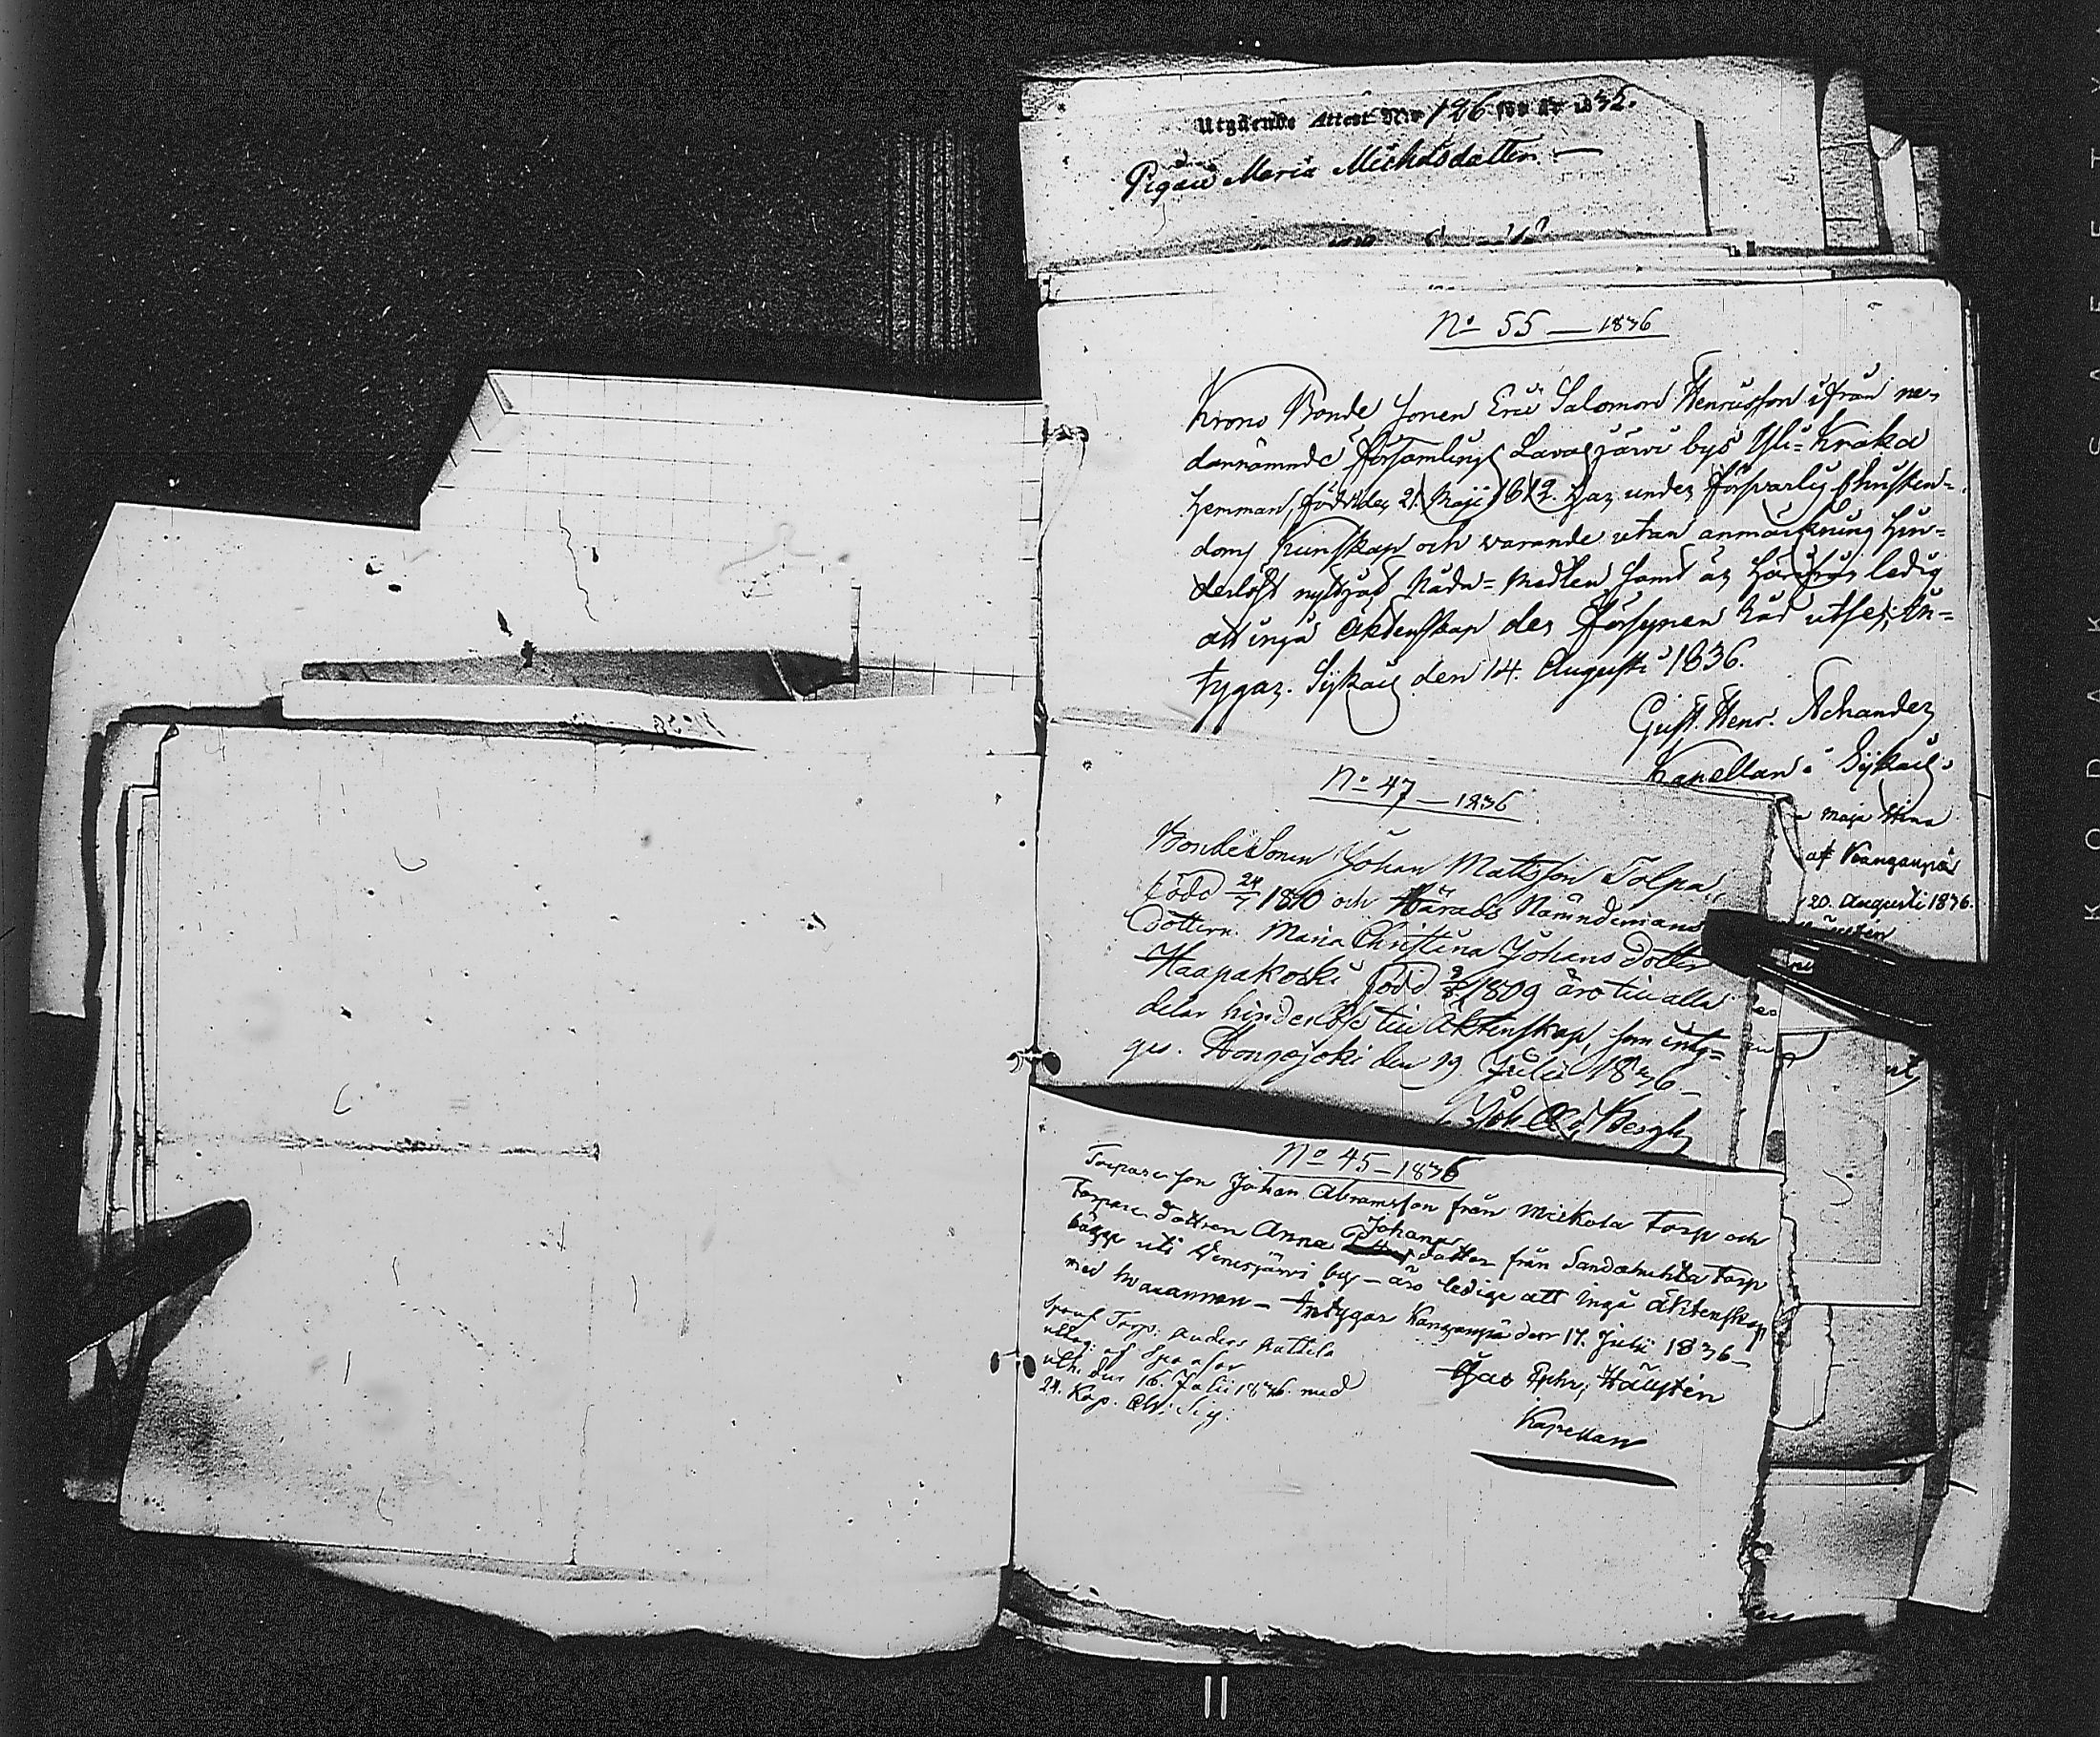 Utgående Attest N:o 126 för år 1835.
Pigan Maria Michelsdotter. —
N:o 55 — 1836
Krono Bonde Sonen Eric Salomon Henricsson ifrån ne-
dannämnde församlings Lavajärvi bys Yli-Kraka
hemman, född den 21. Maji 1812. har under försvarlig Christen-
doms kunskap och varande utan anmärkning hin-
derlöst nyttjat Nåda-Medlen samt är härifrån ledig
att ingå Äktenskap der Försynen Råd utser; In-
tygar. Sijkais den 14. Augusti 1836.
Gust. Henr. Achander
Kapellan i Sijkais.
Maja Stina
af Kangaupä
20. Augusti 1836.
N:o 47 — 1836
Bonde Sonen Johan Mattsson Tolpa,
född 24/7 1810 och Härads Nämndemans
Dottern Maria Christina Johans Dotter
Haapakoski född 1809 äro till alla
delar hinderlöse till Äktenskap, som inty-
gas. Hongojoki den 19 Julii 1836
N:o 45 — 1836
Torpare Son Johan Abramsson från Mickola Torp och
Torpare dottren Anna Johans dotter från Sandahuhta Torp
bägge uti Venesjärvi by — äro ledige att ingå äktenskap
med hvarannan — Intygar Kangaupä den 17. Julii 1836 —
Spons. Torp. Anders Kattila
uttag. af Sponsor
uth. den 16. Julii 1836. med
24. Kop.
Kapellan